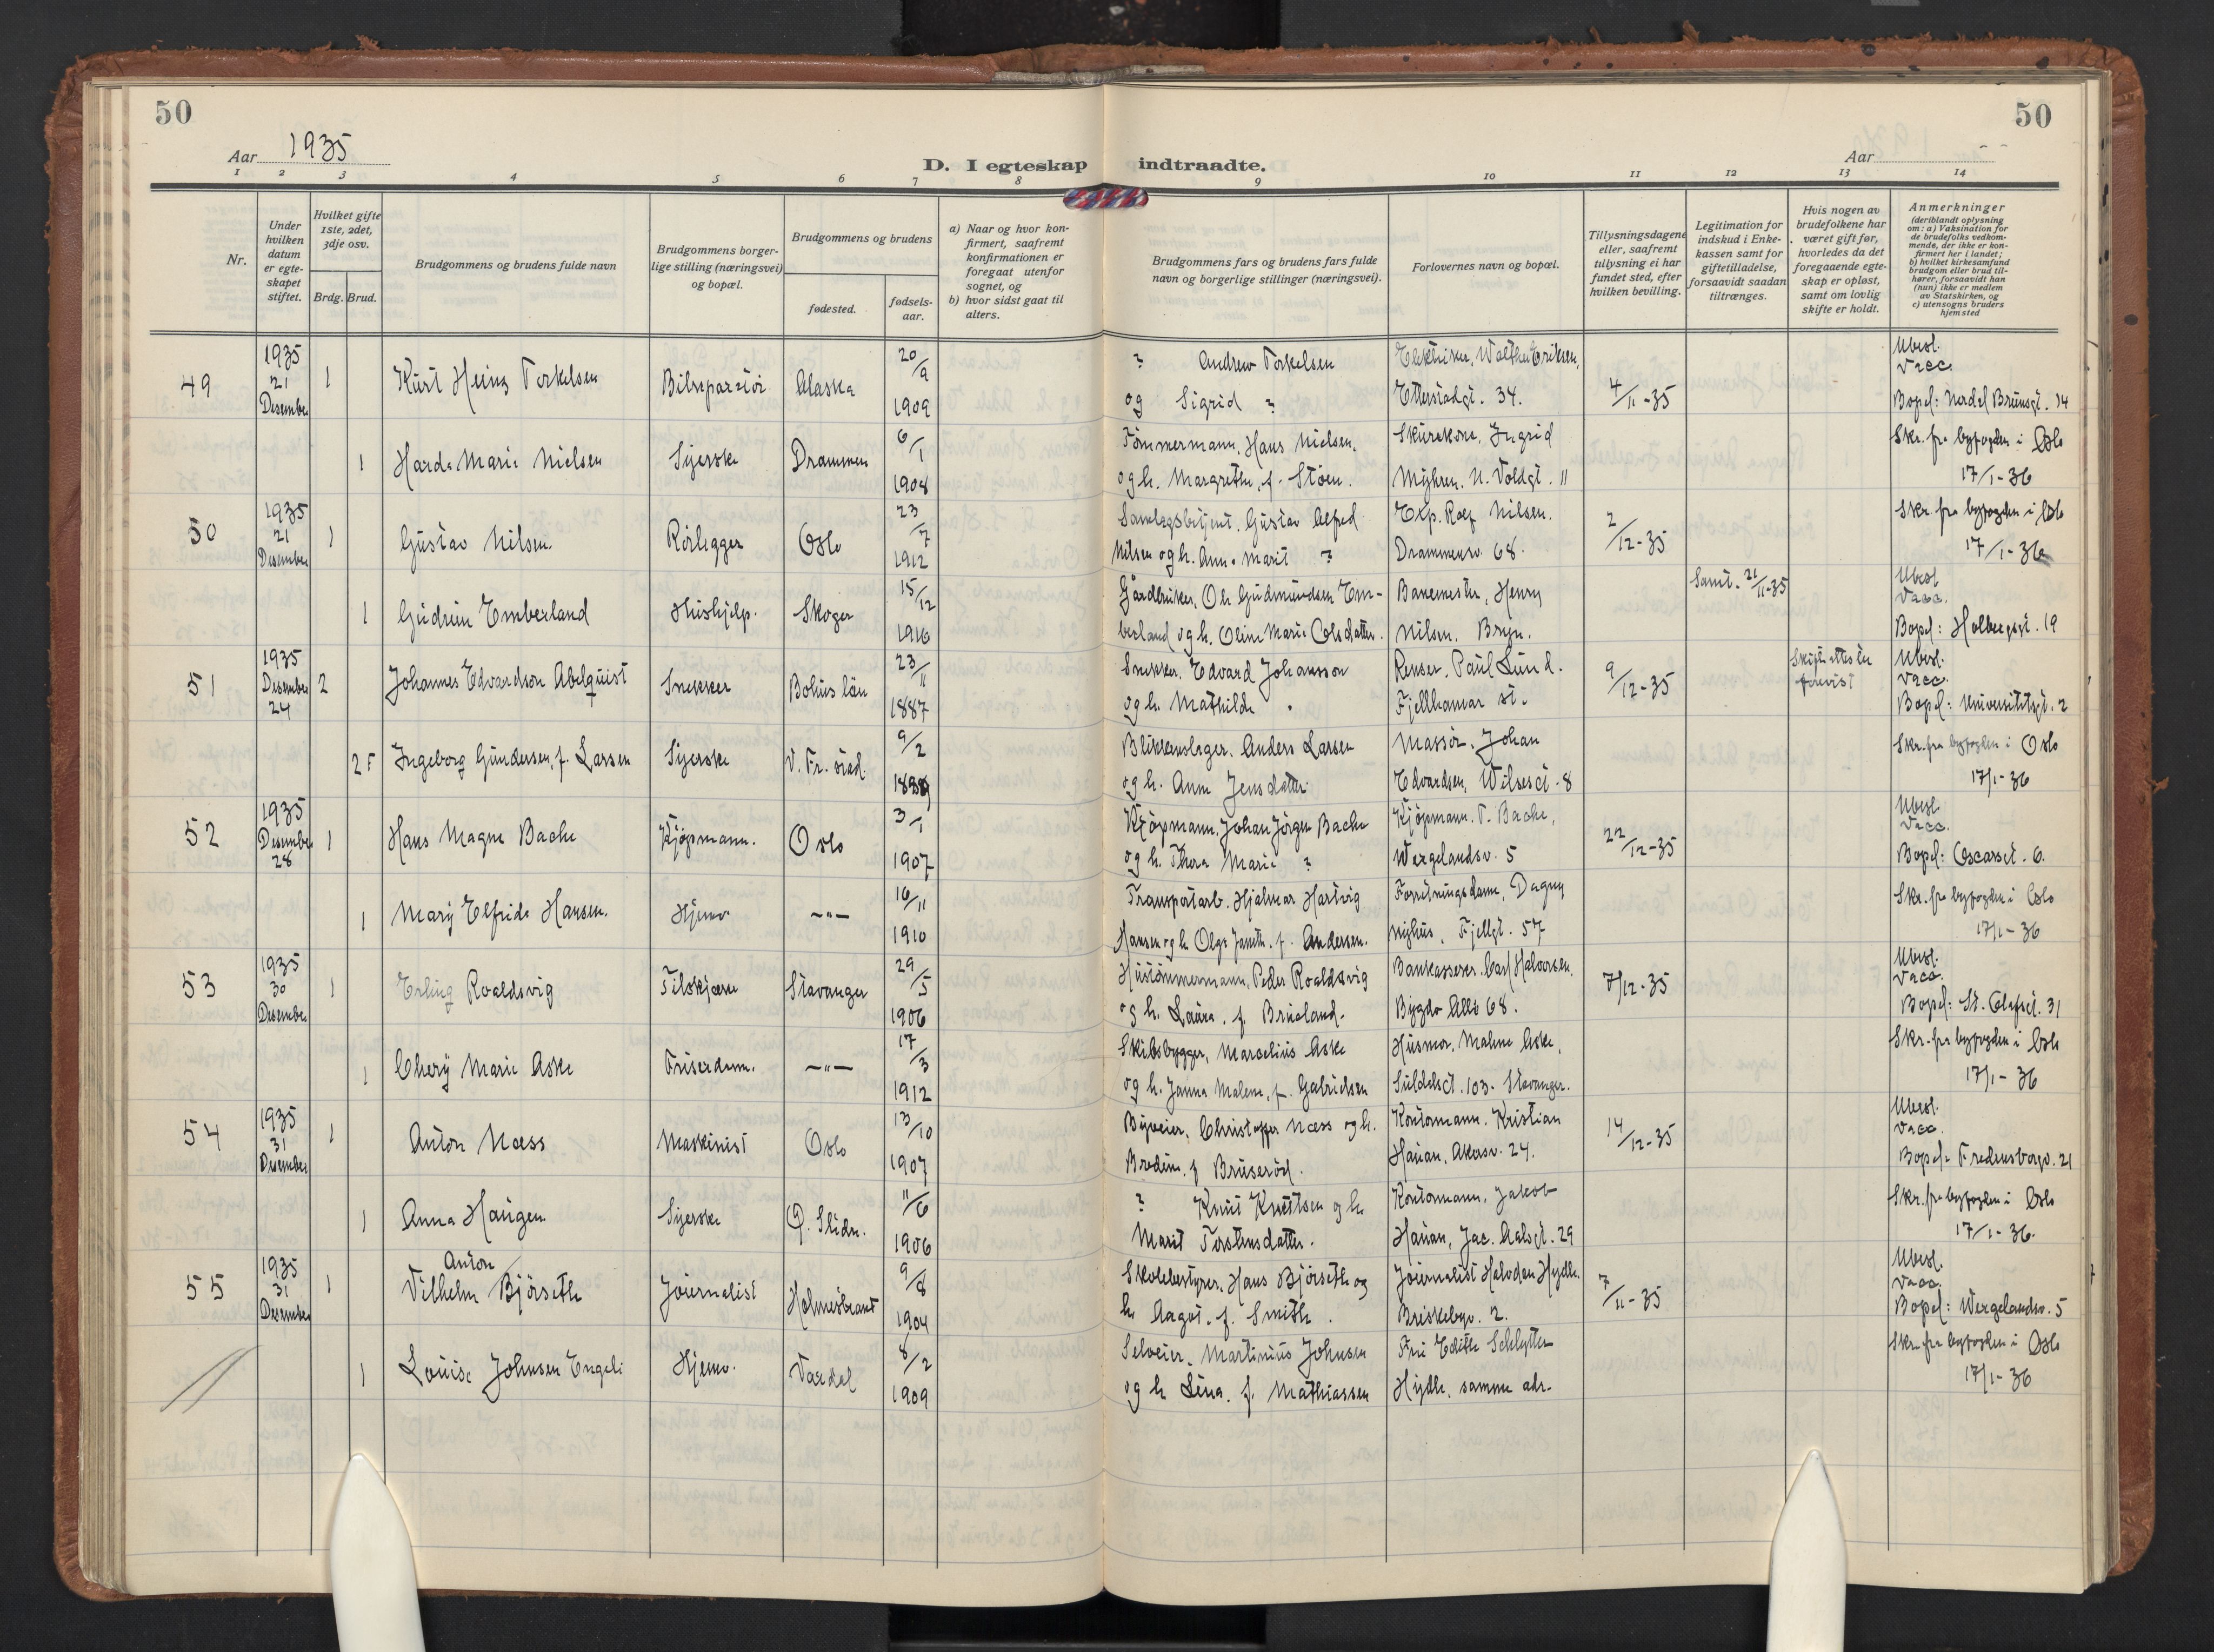 50
50
Aar 1935
D. I egteskap indtraadte.
Aar
1 2 3 4 5 6 7 8 9 10 11 12 13 14
Nr.
Under hvilken datum er egteskapet stiftet.
Hvilket gifte 1ste, 2det, 3dje osv.
Brdg. Brud.
Brudgommens og brudens fulde navn
Brudgommens borgerlige stilling (næringsvei) og bopæl.
Brudgommens og brudens
fødested. fødselsaar.
a) Naar og hvor konfirmert, saafremt konfirmationen er foregaat utenfor sognet, og
b) hvor sidst gaat til alters.
Brudgommens fars og brudens fars fulde navn og borgerlige stillinger (næringsvei).
Forlovernes navn og bopæl.
Tillysningsdagene eller, saafremt tillysning ei har fundet sted, efter hvilken bevilling.
Legitimation for indskud i Enkekassen samt for giftetilladelse, forsaavidt saadan tiltrænges.
Hvis nogen av brudefolkene har været gift før, hvorledes da det foregaaende egteskap er opløst, samt om lovlig skifte er holdt.
Anmerkninger
(deriblandt oplysning om: a) Vaksination for de brudefolks vedkommende, der ikke er konfirmert her i landet; b) hvilket kirkesamfund brudgom eller brud tilhører, forsaavidt han (hun) ikke er medlem av Statskirken, og c) utensogns bruders hjemsted
49 1935 21 Desember 1 Kurt Heinz Torkelsen Bilreparatör Alaska 20/9 1909 ? Andrew Torkelsen Elektriker, Walther Eriksen, 4/11-35 Ubesl. Vacc.
og Sigrid ? Etterstadgt. 34. Bopel: Nordal Brunsgt. 14
1 Harda Marie Nielsen Syerske Drammen 6/1 1908 Tömmermann. Hans Nielsen. Skurekone, Ingrid Skr. fra byfogden i Oslo
og h. Margrethe, f. Stöen. Myhren. N. Voldgt. 11 17/1-36
50 1935 21 Desember 1 Gustav Nilsen Rörlegger Oslo 23/7 1912 Samlagsbetjent. Gustav Alfred Exp. Rolf Nilsen. 2/12-35 Skr. fra byfogden i Oslo
Nilsen og h. Anna Marit ? Drammensv. 68. 17/1-36
1 Gudrun Emberland Hushjelp. Skoger 15/12 1916 Gårdbruker, Ole Gudmundsen Em- Banemester, Henry Samt. 21/11-35 Ubesl Vacc.
berland og h. Oline Marie Olsdatter. Nilsen. Bryn. Bopel: Holbergsgt. 19
51 1935 Desember 24 2 Johannes Edvardson Abelquist Snekker Bohus län 23/11 1887 Snekker. Edvard Johansson Renser. Paul Lund. 9/12-35 Skifteattester forevist Ubesl. Vacc.
og h. Mathilde Fjellhamar st. Bopel: Universitetsgt. 2
2 F Ingeborg Gundersen, f. Larsen Syerske V. Fr. stad. 9/2 Blikkenslager. Anders Larsen Massör. Johan Skr. fra byfogden i Oslo
og h. Anne Jensdatter Edvardsen, Wilsesgt. 8 17/1-36
52 1935 Desember 28 1 Hans Magne Bache Kjöpmann. Oslo 3/1 1907 Kjöpmann, Johan Jörgen Bache Kjöpmann. T. Bache, 22/12-35 Ubesl. Vacc.
og h. Thora Marie ? Wergelandsv. 5 Bopel: Oscarsgt. 6.
1 Mary Elfrida Hansen. Hjemv. -"- 16/11 1910 Transportarb. Hjalmar Hartvig Forretningsdame, Dagny Skr. fra byfogden i Oslo
Hansen og h. Olga Janeth. f. Andersen. Nyhus, Fjellgt. 57 17/1-36
53 1935 30 Desember 1 Erling Roaldsvig Tilskjærer Stavanger 29/5 1906 Hustömmermann, Peder Roaldsvig Bankkasserer. Carl Halvorsen. 7/12-35 Ubesl. Vacc.
og h. Laura. f. Brueland. Bygdø Allé 68. Bopel: St. Olafsgt. 31
1 Chery Marie Aske Friserdame. -"- 17/3 1912 Skibsbygger, Marcelius Aske Husmor. Malene Aske, Skr. fra byfogden i Oslo
og h. Janna Malene, f. Gabrielsen Suldalsgt. 103. Stavanger. 17/1-36
54 1935 31 Desember 1 Anton Næss Maskinist Oslo 13/10 1907 Byveier, Christopher Næss og h. Kontormann. Kristian 14/12-35 Ubesl. Vacc.
Bredine. f. Bruseröd. Hauan, Akersv. 24. Bopel: Fredensborgv. 21
1 Anna Haugen Syerske Ø. Slidre. 11/6 1906 ? Knut Knuttsen og h. Kontormann, Jakob Skr. fra byfogden i Oslo
Marit Torstensdatter. Hauan, Jac. Aalsgt. 29 17/1-36.
55 1935 31 Desember 1 Vilhelm Anton Björseth Journalist Holmestrand 9/8 1904 Skolebestyrer, Hans Björseth og Journalist Halvdan Hydle. 7/11-35 Ubesl. Vacc.
h. Aagot. f. Smith. Briskebyv. 2. Bopel: Wergelandsv. 5
1 Louise Johnsen Engeli Hjemv. Vardal 8/2 1909 Selveier. Martinius Johnsen Fru Edith Schlytter Skr. fra byfogden i Oslo
og h. Lina. f. Mathiassen Hydle, samme adr. 17/1-36